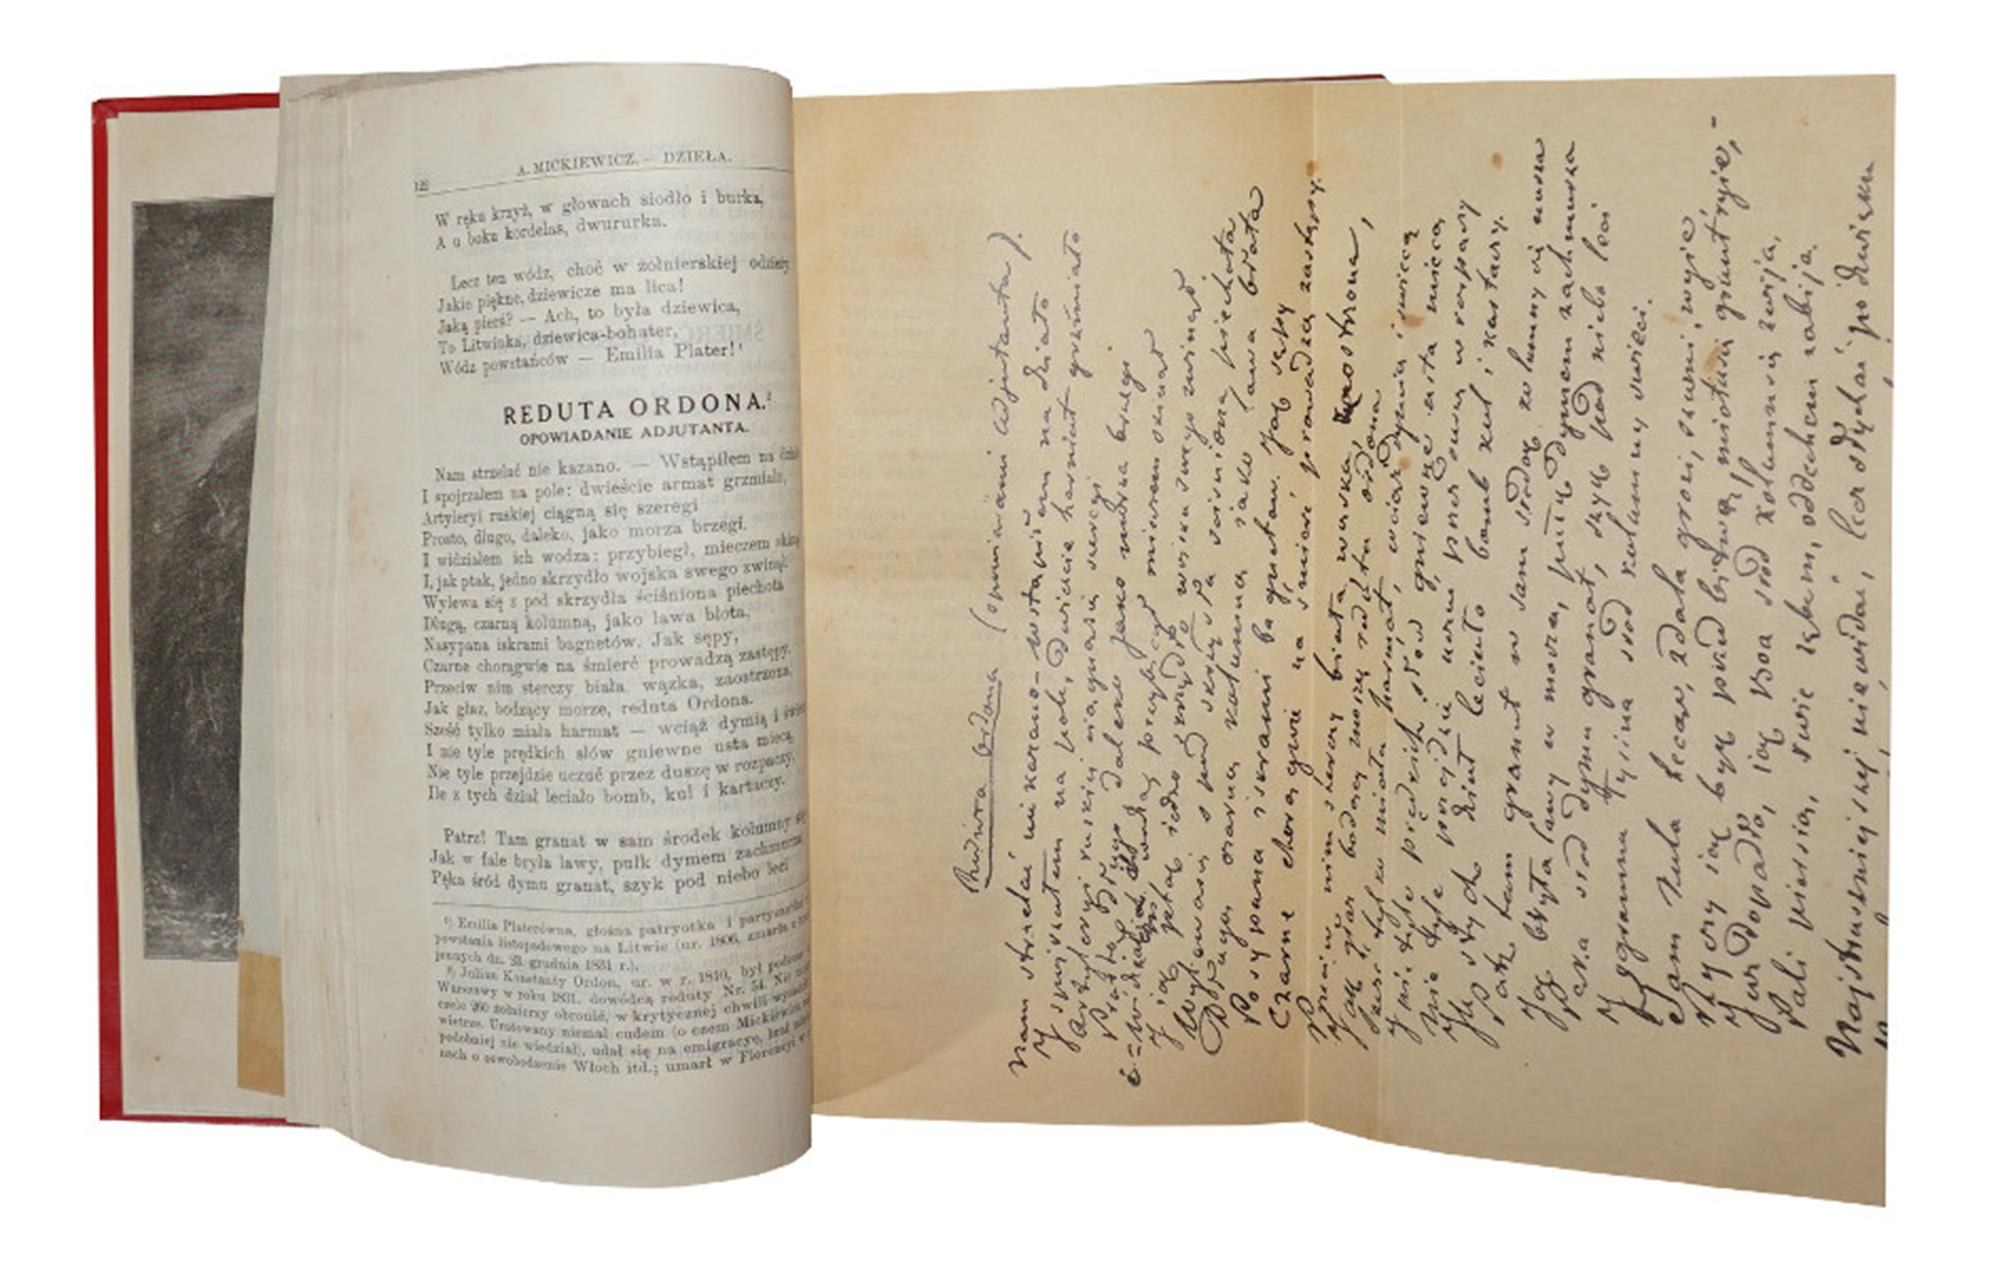 122
A. MICKIEWICZ. — DZIEŁA.
W ręku krzyż, w głowach siodło i burka,
A u boku kordelas, dwururka.
Lecz ten wódz, choć w żołnierskiej odzieży,
Jakie piękne, dziewicze ma lica!
Jaką pierś? — Ach, to była dziewica,
To Litwinka, dziewica-bohater,
Wódz powstańców — Emilia Plater!¹
REDUTA ORDONA.²
OPOWIADANIE ADJUTANTA.
Nam strzelać nie kazano. — Wstąpiłem na
I spojrzałem na pole: dwieście armat grzmiało,
Artyleryi ruskiej ciągną się szeregi
Prosto, długo, daleko, jako morza brzegi.
I widziałem ich wodza: przybiegł, mieczem
I, jak ptak, jedno skrzydło wojska swego zwinął.
Wylewa się z pod skrzydła ściśniona piechota
Długą, czarną kolumną, jako lawa błota,
Nasypana iskrami bagnetów. Jak sępy,
Czarne chorągwie na śmierć prowadzą zastępy.
Przeciw nim sterczy biała, wązka, zaostrzona,
Jak głaz, bodzący morze, reduta Ordona.
Sześć tylko miała harmat — wciąż dymią i
I nie tyle prędkich słów gniewne usta miecą,
Nie tyle przejdzie uczuć przez duszę w rozpaczy,
Ile z tych dział leciało bomb, kul i kartaczy.
Patrz! Tam granat w sam środek kolumny się
Jak w fale bryła lawy, pułk dymem
Pęka śród dymu granat, szyk pod niebo leci
¹) Emilia Platerówna, głośna patryotka i
powstania listopadowego na Litwie (ur. 1806, zmarła
dn. 23. grudnia 1831 r.).
²) Julian Konstanty Ordon, ur. w r. 1810, był
Warszawy w roku 1831. dowódcą reduty Nr. 54. Nie
czele 260 żołnierzy obronić, w krytycznej chwili
wietrze. Uratowany niemal cudem (o czem Mickiewicz
podobniej nie wiedział), udał się na emigracyę, brał
o oswobodzenie Włoch itd.; umarł w Florencyi
Ordona
Nam strzelać nie kazano — wstąpiłem na działo
I spojrzałem na pole, dwieście harmat grzmiało
Artyleryi ruskiej ciągną się szeregi
Prosto, długo daleko jako morza brzegi
wodza przybiegł mieczem skinął
I jak ptak jedno skrzydło wojska swego zwinął
Wylewa się z pod skrzydła ściśniona piechota
Długą czarną kolumną jako lawa błota
Posypana iskrami bagnetów. Jak sępy
Czarne chorągwie na śmierć prowadzą zastępy.
Przeciw nim sterczy biała, wąska, zaostrzona,
Jak głaz bodzący morze reduta ordona
Sześć tylko miała harmat, wciąż dymią i świecą
I nie tyle prędkich słów gniewne usta miecą
Nie tyle przejdzie uczuć przez duszę w rozpaczy
Ile z tych dział leciało bomb kul i kartaczy.
Patrz tam granat w sam środek kolumny się nurza
Jak bryła lawy w morza, pułk dymem zachmurza
Pęka śród dymu granat, szyk pod niebo leci
I ogromna łysina śród kolumny świeci.
Tam kula lecąc, zdala grozi, szumi, wyje
Ryczy jak byk przed bitwą, miota się, grunt ryje, –
Już dopadła, jak boa śród kolumn się zwija,
Pali piersią, rwie zębem, oddechem zabija.
Najstraszniejszej nie widać, lecz słychać po dźwięku